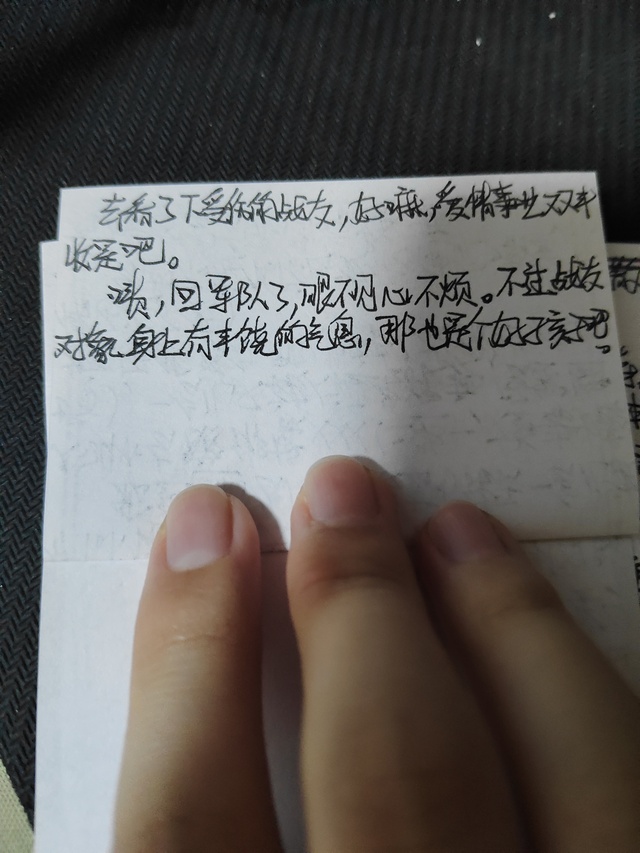 去看了下受伤的战友，好嘛，爱情事业双丰
收是吧。
啧，回军队了，眼不见心不烦。不过战友
对象身上有丰饶的气息，那也是个好孩子吧。